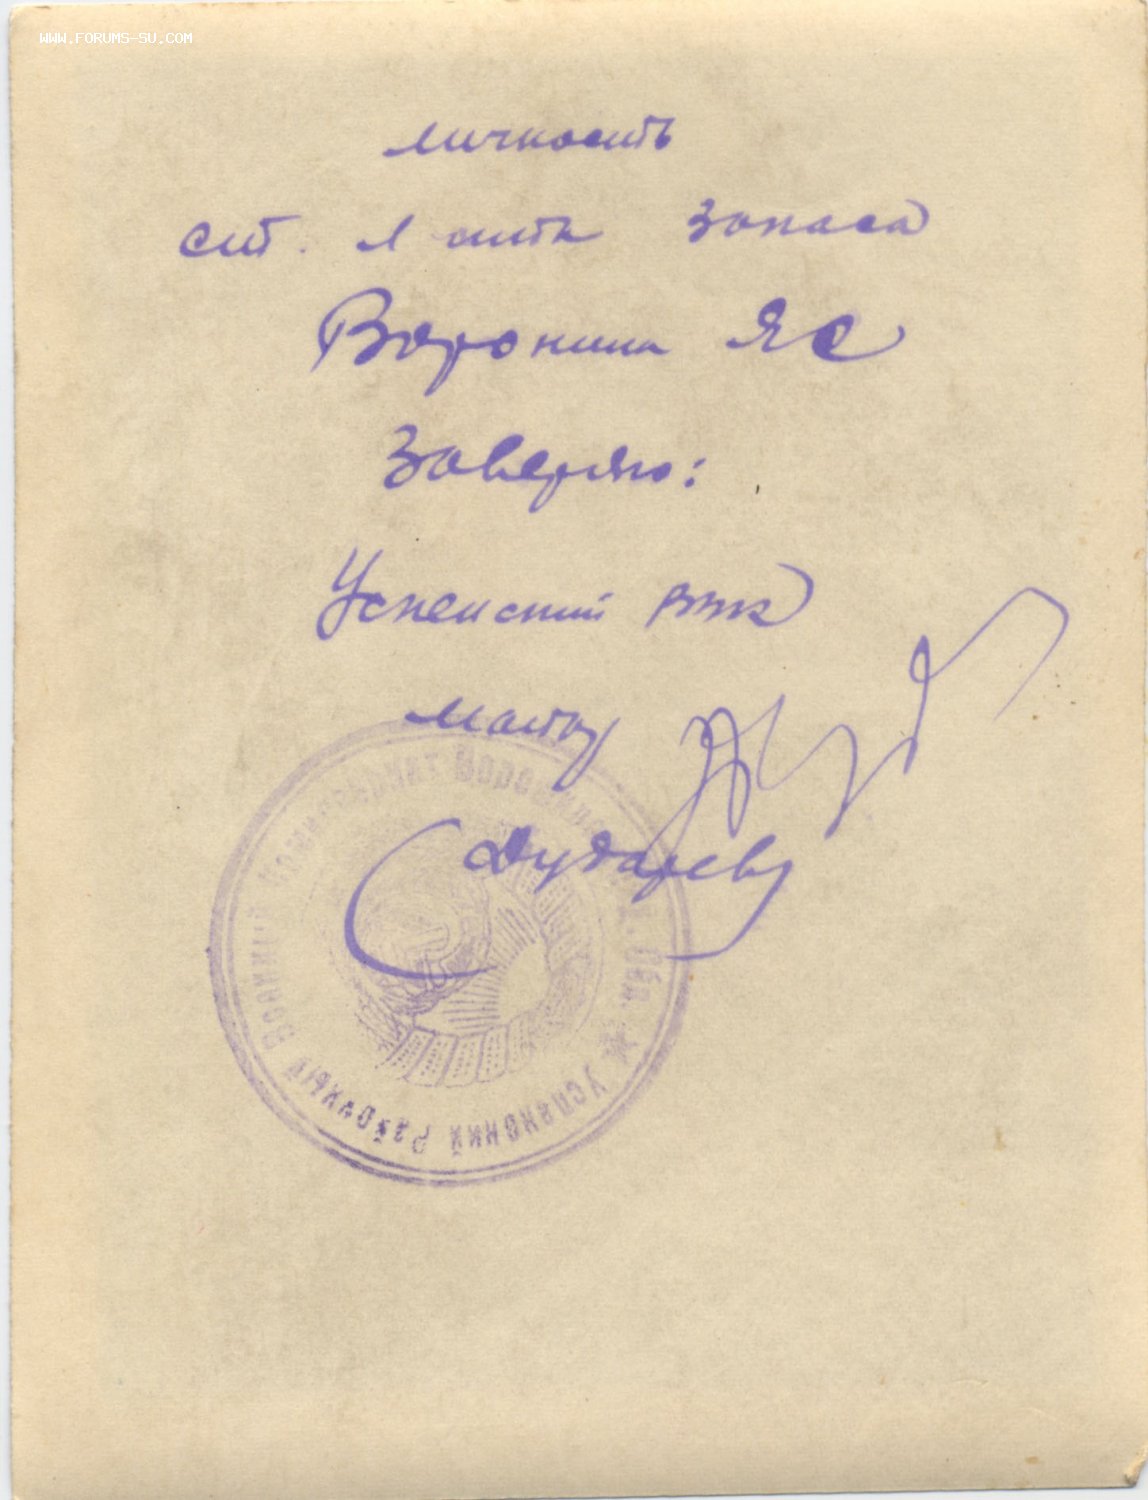 WWW.FORUMS-SU.COM
личность
ст. л-нта запаса
Воронина ЯС
Заверяю:
Успенский РВК
Дударев
Успенский Районный Военный Комиссариат Обл.